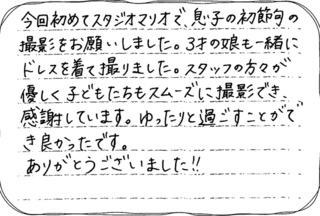 今回初めてスタジオマリオで、息子の初節句の
撮影をお願いしました。3才の娘も一緒に
ドレスを着て撮りました。スタッフの方々が
優しく子どもたちもスムーズに撮影でき、
感謝しています。ゆったりと過ごすことがで
き良かったです。
ありがとうございました!!